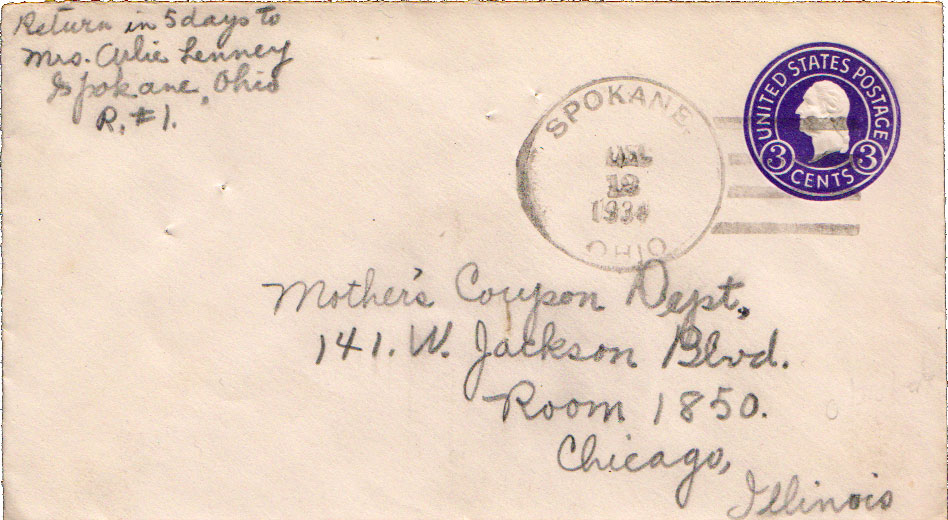 Return in 5 days to
Mrs. Arlie Lenney
Spokane, Ohio
R. #1.
SPOKANE.
19
1934
OHIO
UNITED STATES POSTAGE
3 CENTS 3
Mother's Coupon Dept.,
141. W. Jackson Blvd.
Room 1850.
Chicago,
Illinois